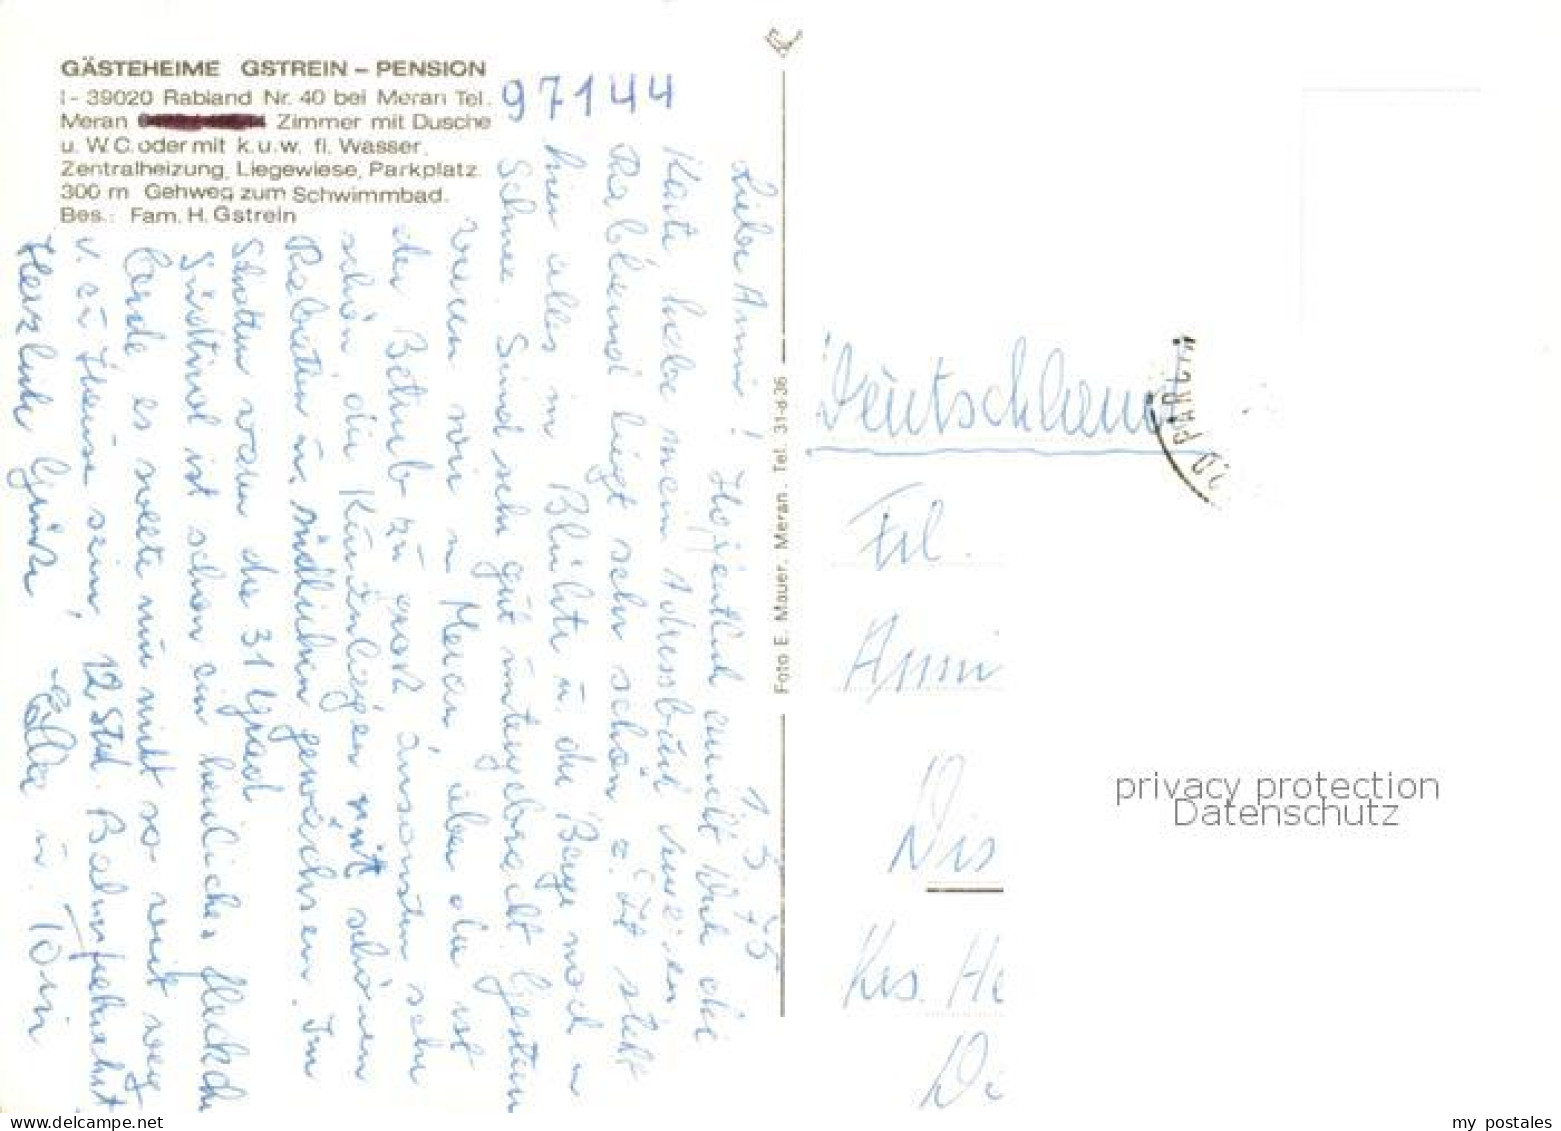 GÄSTEHEIME GSTREIN – PENSION
I - 39020 Rabland Nr. 40 bei Meran Tel.
Meran Zimmer mit Dusche
u. W.C. oder mit k.u.w. fl. Wasser,
Zentralheizung, Liegewiese, Parkplatz.
300 m Gehweg zum Schwimmbad.
Bes.: Fam. H. Gstrein
97144
1.5.75
Liebe Anni! Hoffentlich erreicht Dich die
Karte, habe mein Adressbuch
Rabland liegt sehr schön z. Zt steht
hier alles in Blüte u. die Berge noch in
Schnee. Sind sehr gut untergebracht. Gestern
waren wir in Meran, aber da ist
der Betrieb zu groß ansonsten sehr
schön, die Kuranlagen mit schönen
Rabatten u. südlichen gewächsen. Im
Schatten waren da 31 Grad
Südtirol ist schon ein herrliches Fleckchen
Erde es sollte nur nicht so weit weg
v. zu Hause sein, 12 Std. Bahnfahrt
Herzliche Grüße Ella u. Toni
Foto E. Mauer, Meran. Tel. 31-d-36
Deutschland
Frl.
Anni
Dis
Krs. He
Di
PART
privacy protection
Datenschutz
my postales